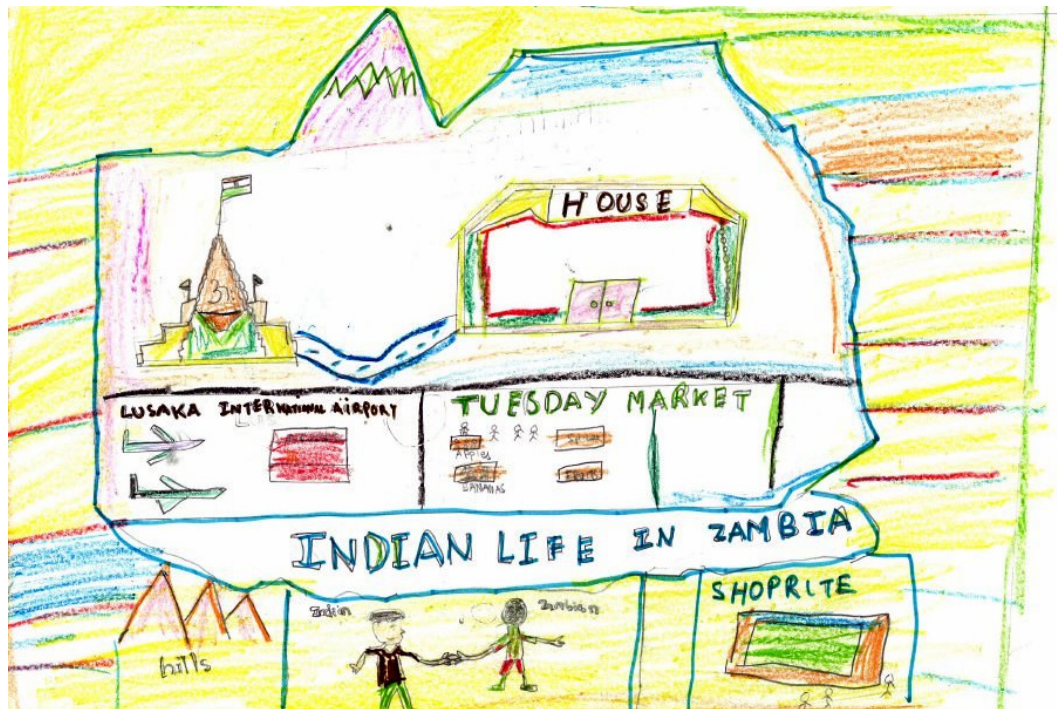 ૐ
HOUSE
LUSAKA INTERNATIONAL AIRPORT
TUESDAY MARKET
Apples
BANANAS
INDIAN LIFE IN ZAMBIA
SHOPRITE
Indian
Zambian
hills